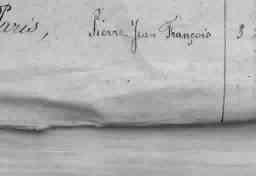 Paris, Pierre Jean François 3